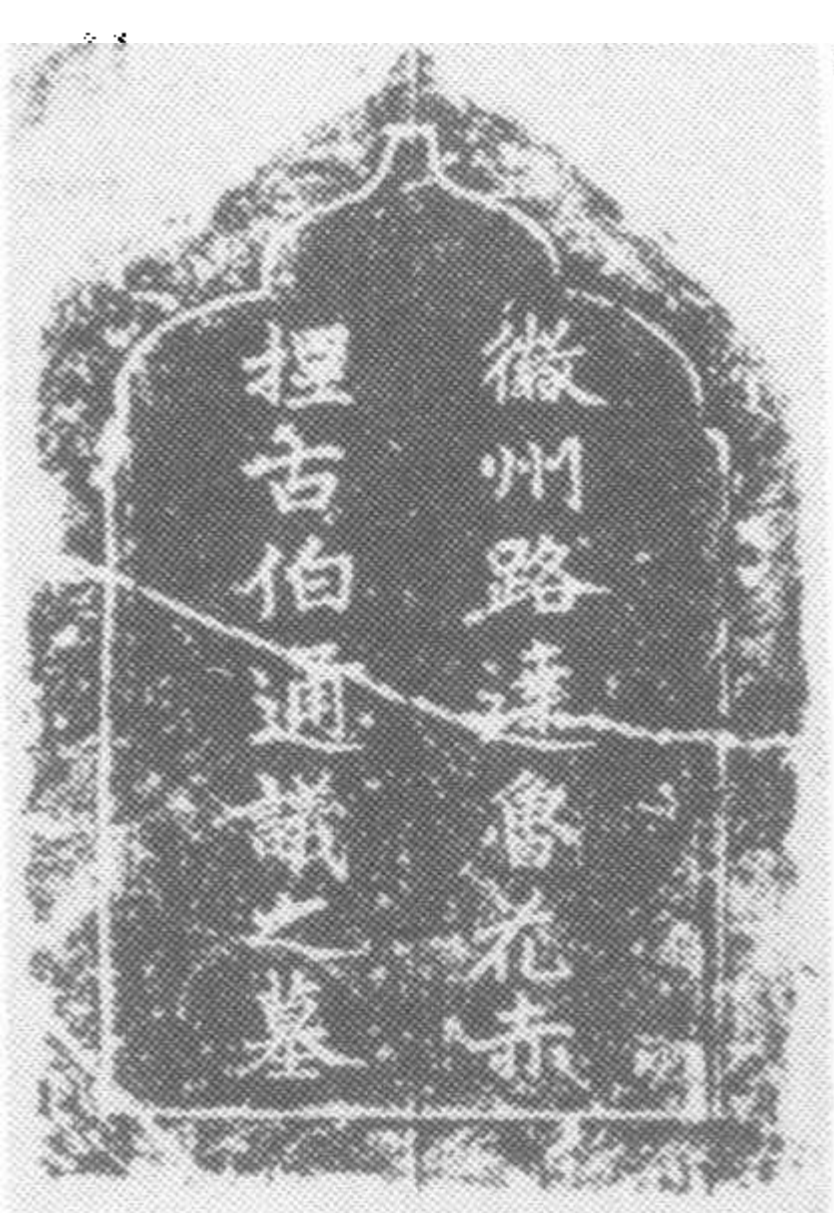 徽州路達魯花赤
捏古伯通議之墓